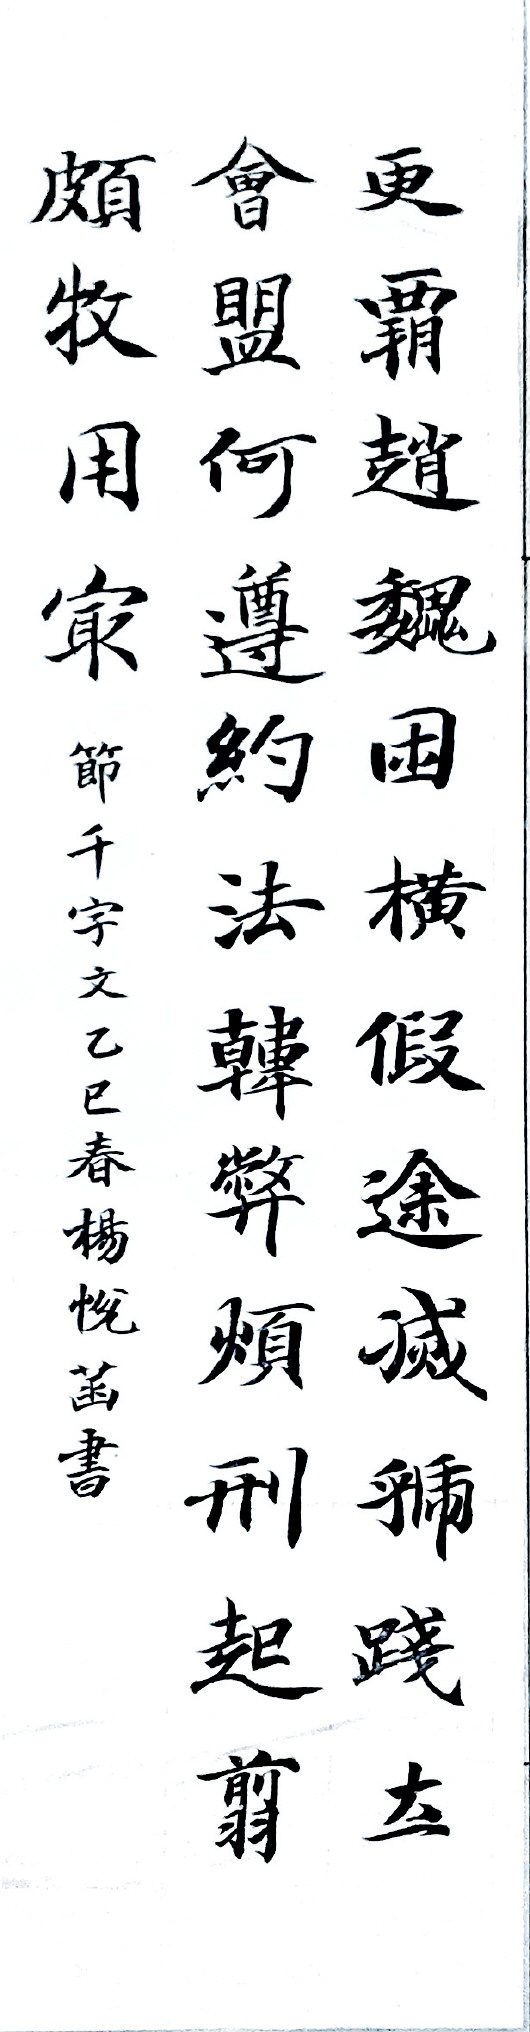 更霸趙魏困橫假途滅虢踐土
會盟何遵約法韓弊煩刑起翦
頗牧用冣節千字文乙巳春楊悅菡書